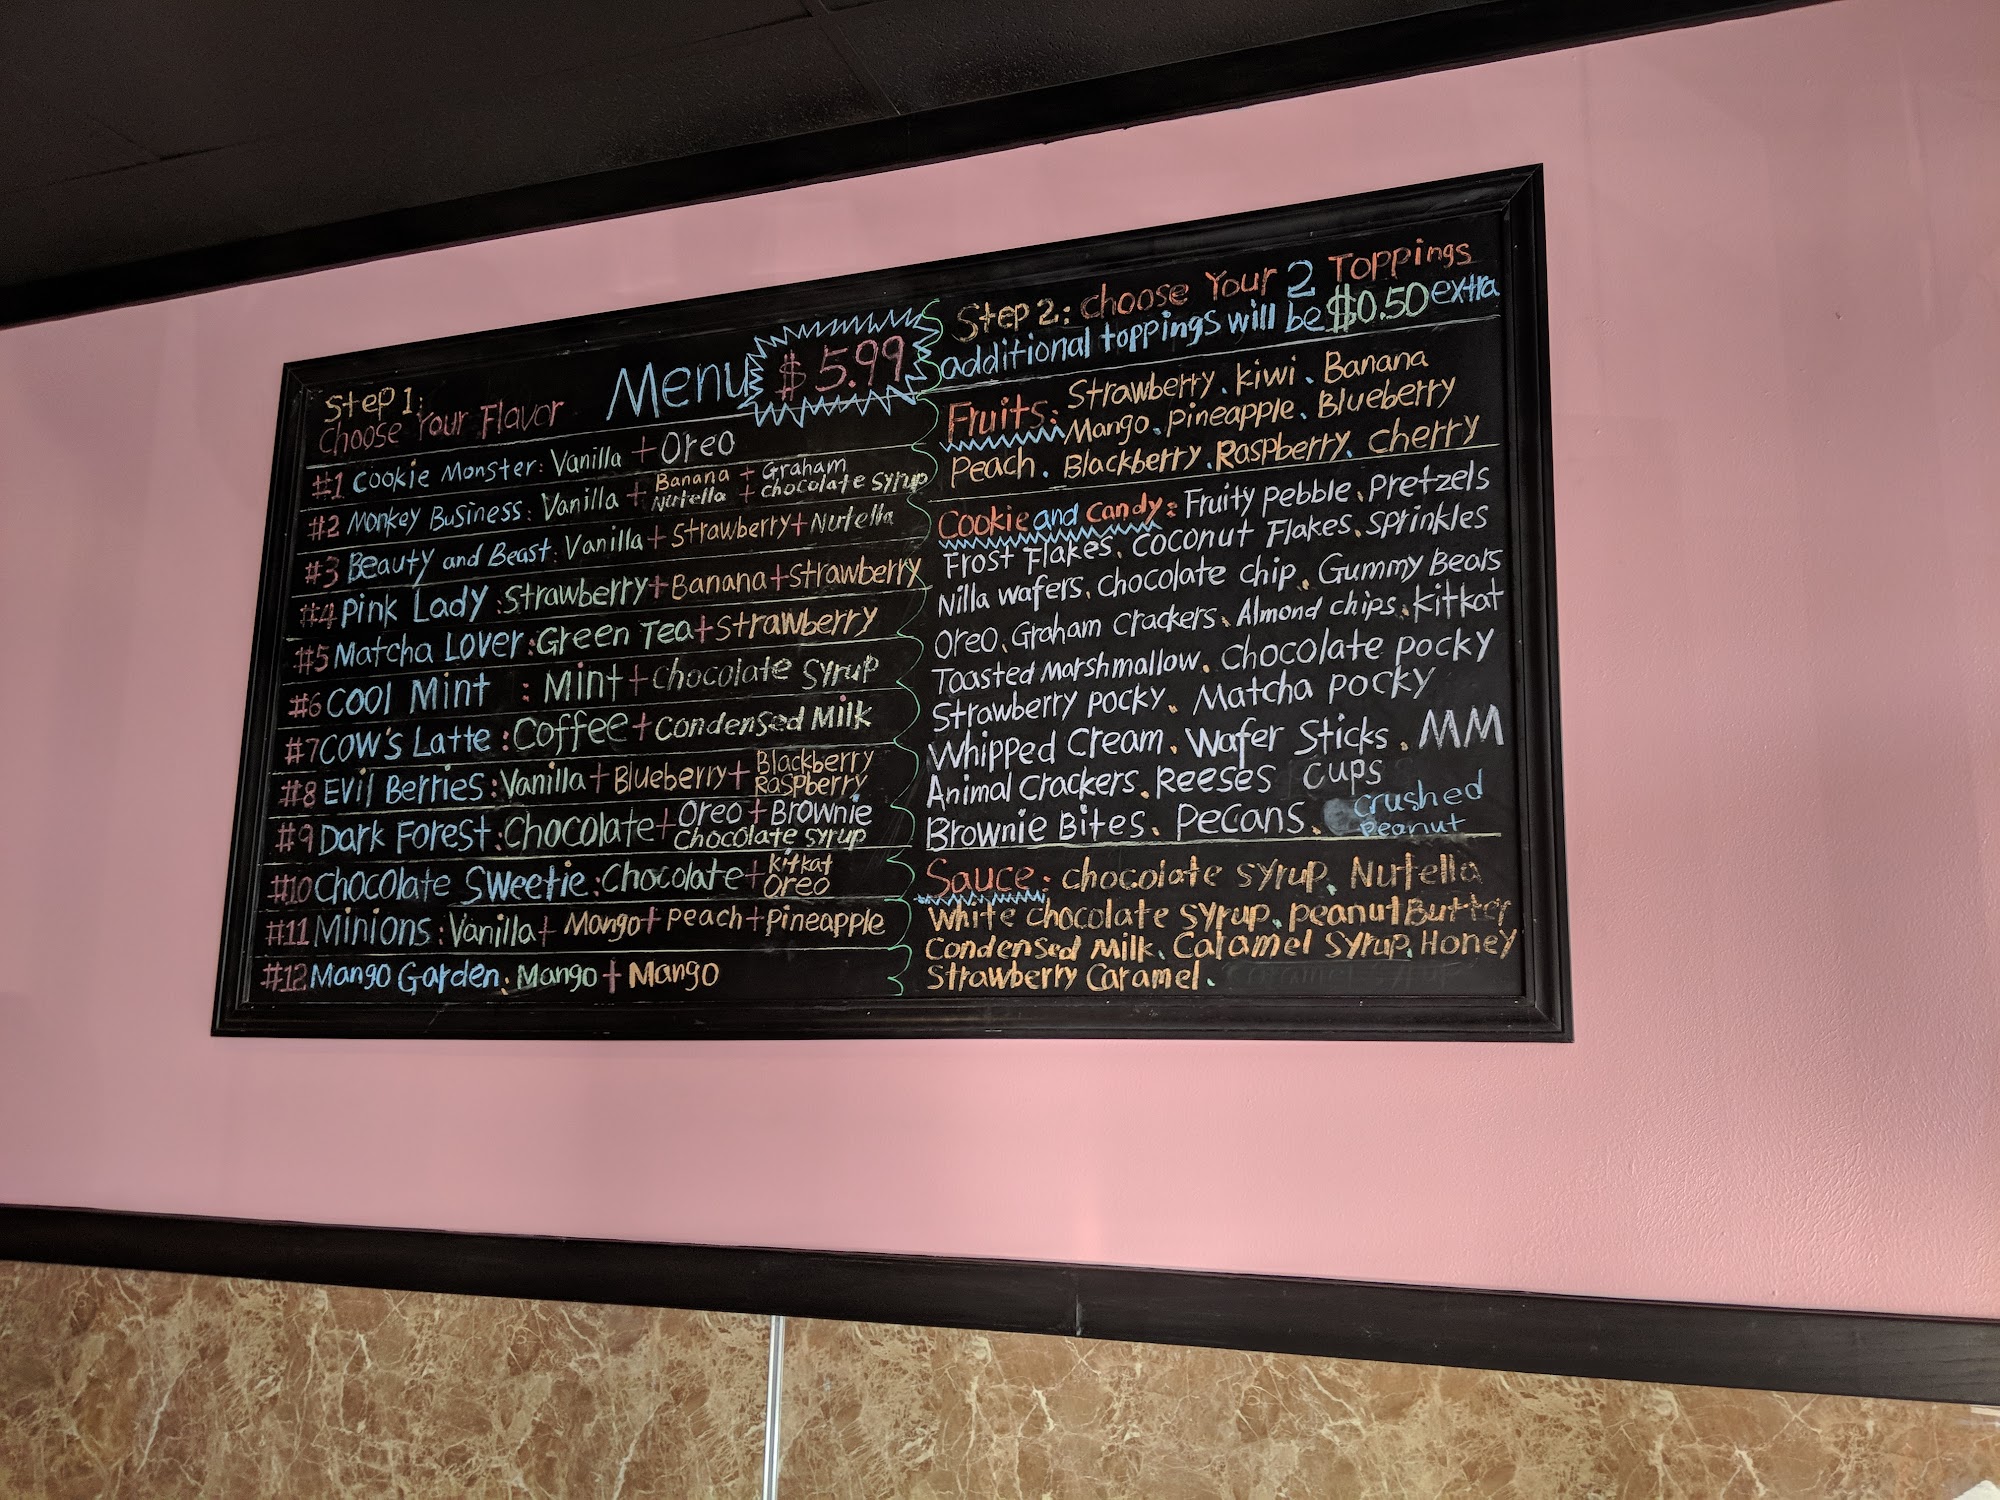 Step 1:
Choose Your Flavor
Menu $5.99
#1 Cookie Monster: Vanilla + Oreo
#2 Monkey Business: Vanilla + Banana + Graham
Nutella + chocolate syrup
#3 Beauty and Beast: Vanilla + Strawberry + Nutella
#4 Pink Lady: Strawberry + Banana + Strawberry
#5 Matcha Lover: Green Tea + Strawberry
#6 Cool Mint : Mint + Chocolate Syrup
#7 Cow's Latte: Coffee + Condensed Milk
#8 Evil Berries: Vanilla + Blueberry + Blackberry
Raspberry
#9 Dark Forest: Chocolate + Oreo + Brownie
Chocolate syrup
#10 Chocolate Sweetie: Chocolate + Kitkat
Oreo
#11 Minions: Vanilla + Mango + Peach + Pineapple
#12 Mango Garden: Mango + Mango
Step 2: Choose Your 2 Toppings
additional toppings will be $0.50 extra
Fruits: Strawberry. Kiwi. Banana
Mango. Pineapple. Blueberry
Peach. Blackberry. Raspberry. Cherry
Cookie and Candy: Fruity Pebble. Pretzels
Frost Flakes. Coconut Flakes. Sprinkles
Nilla wafers. Chocolate chip. Gummy Bears
Oreo. Graham Crackers. Almond chips. Kitkat
Toasted Marshmallow. Chocolate pocky
Strawberry pocky. Matcha pocky
Whipped Cream. Wafer Sticks. MM
Animal Crackers. Reeses cups
Brownie Bites. Pecans. Crushed
Peanut
Sauce: chocolate syrup. Nutella
White chocolate syrup. Peanut Butter
Condensed Milk. Caramel Syrup. Honey
Strawberry Caramel.